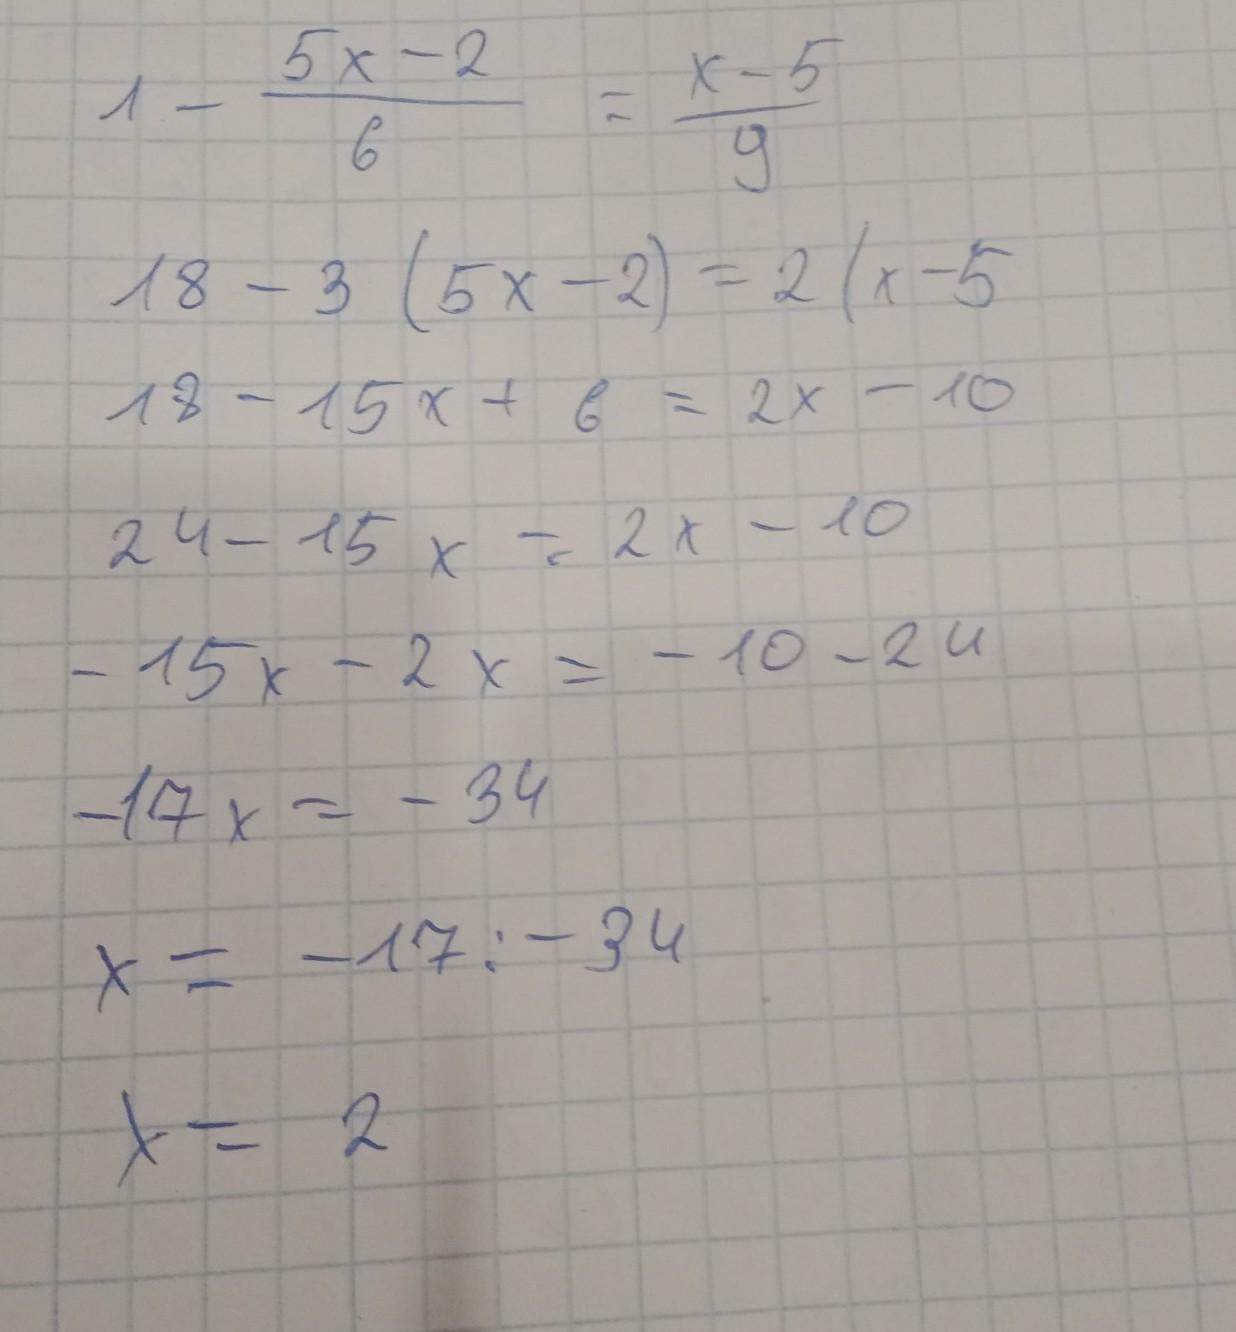 1 - \frac{5x-2}{6} = \frac{x-5}{9}
18 - 3 (5x - 2) = 2 (x - 5
18 - 15x + 6 = 2x - 10
24 - 15x = 2x - 10
- 15x - 2x = - 10 - 24
- 17x = - 34
x = - 17 : - 34
x = 2